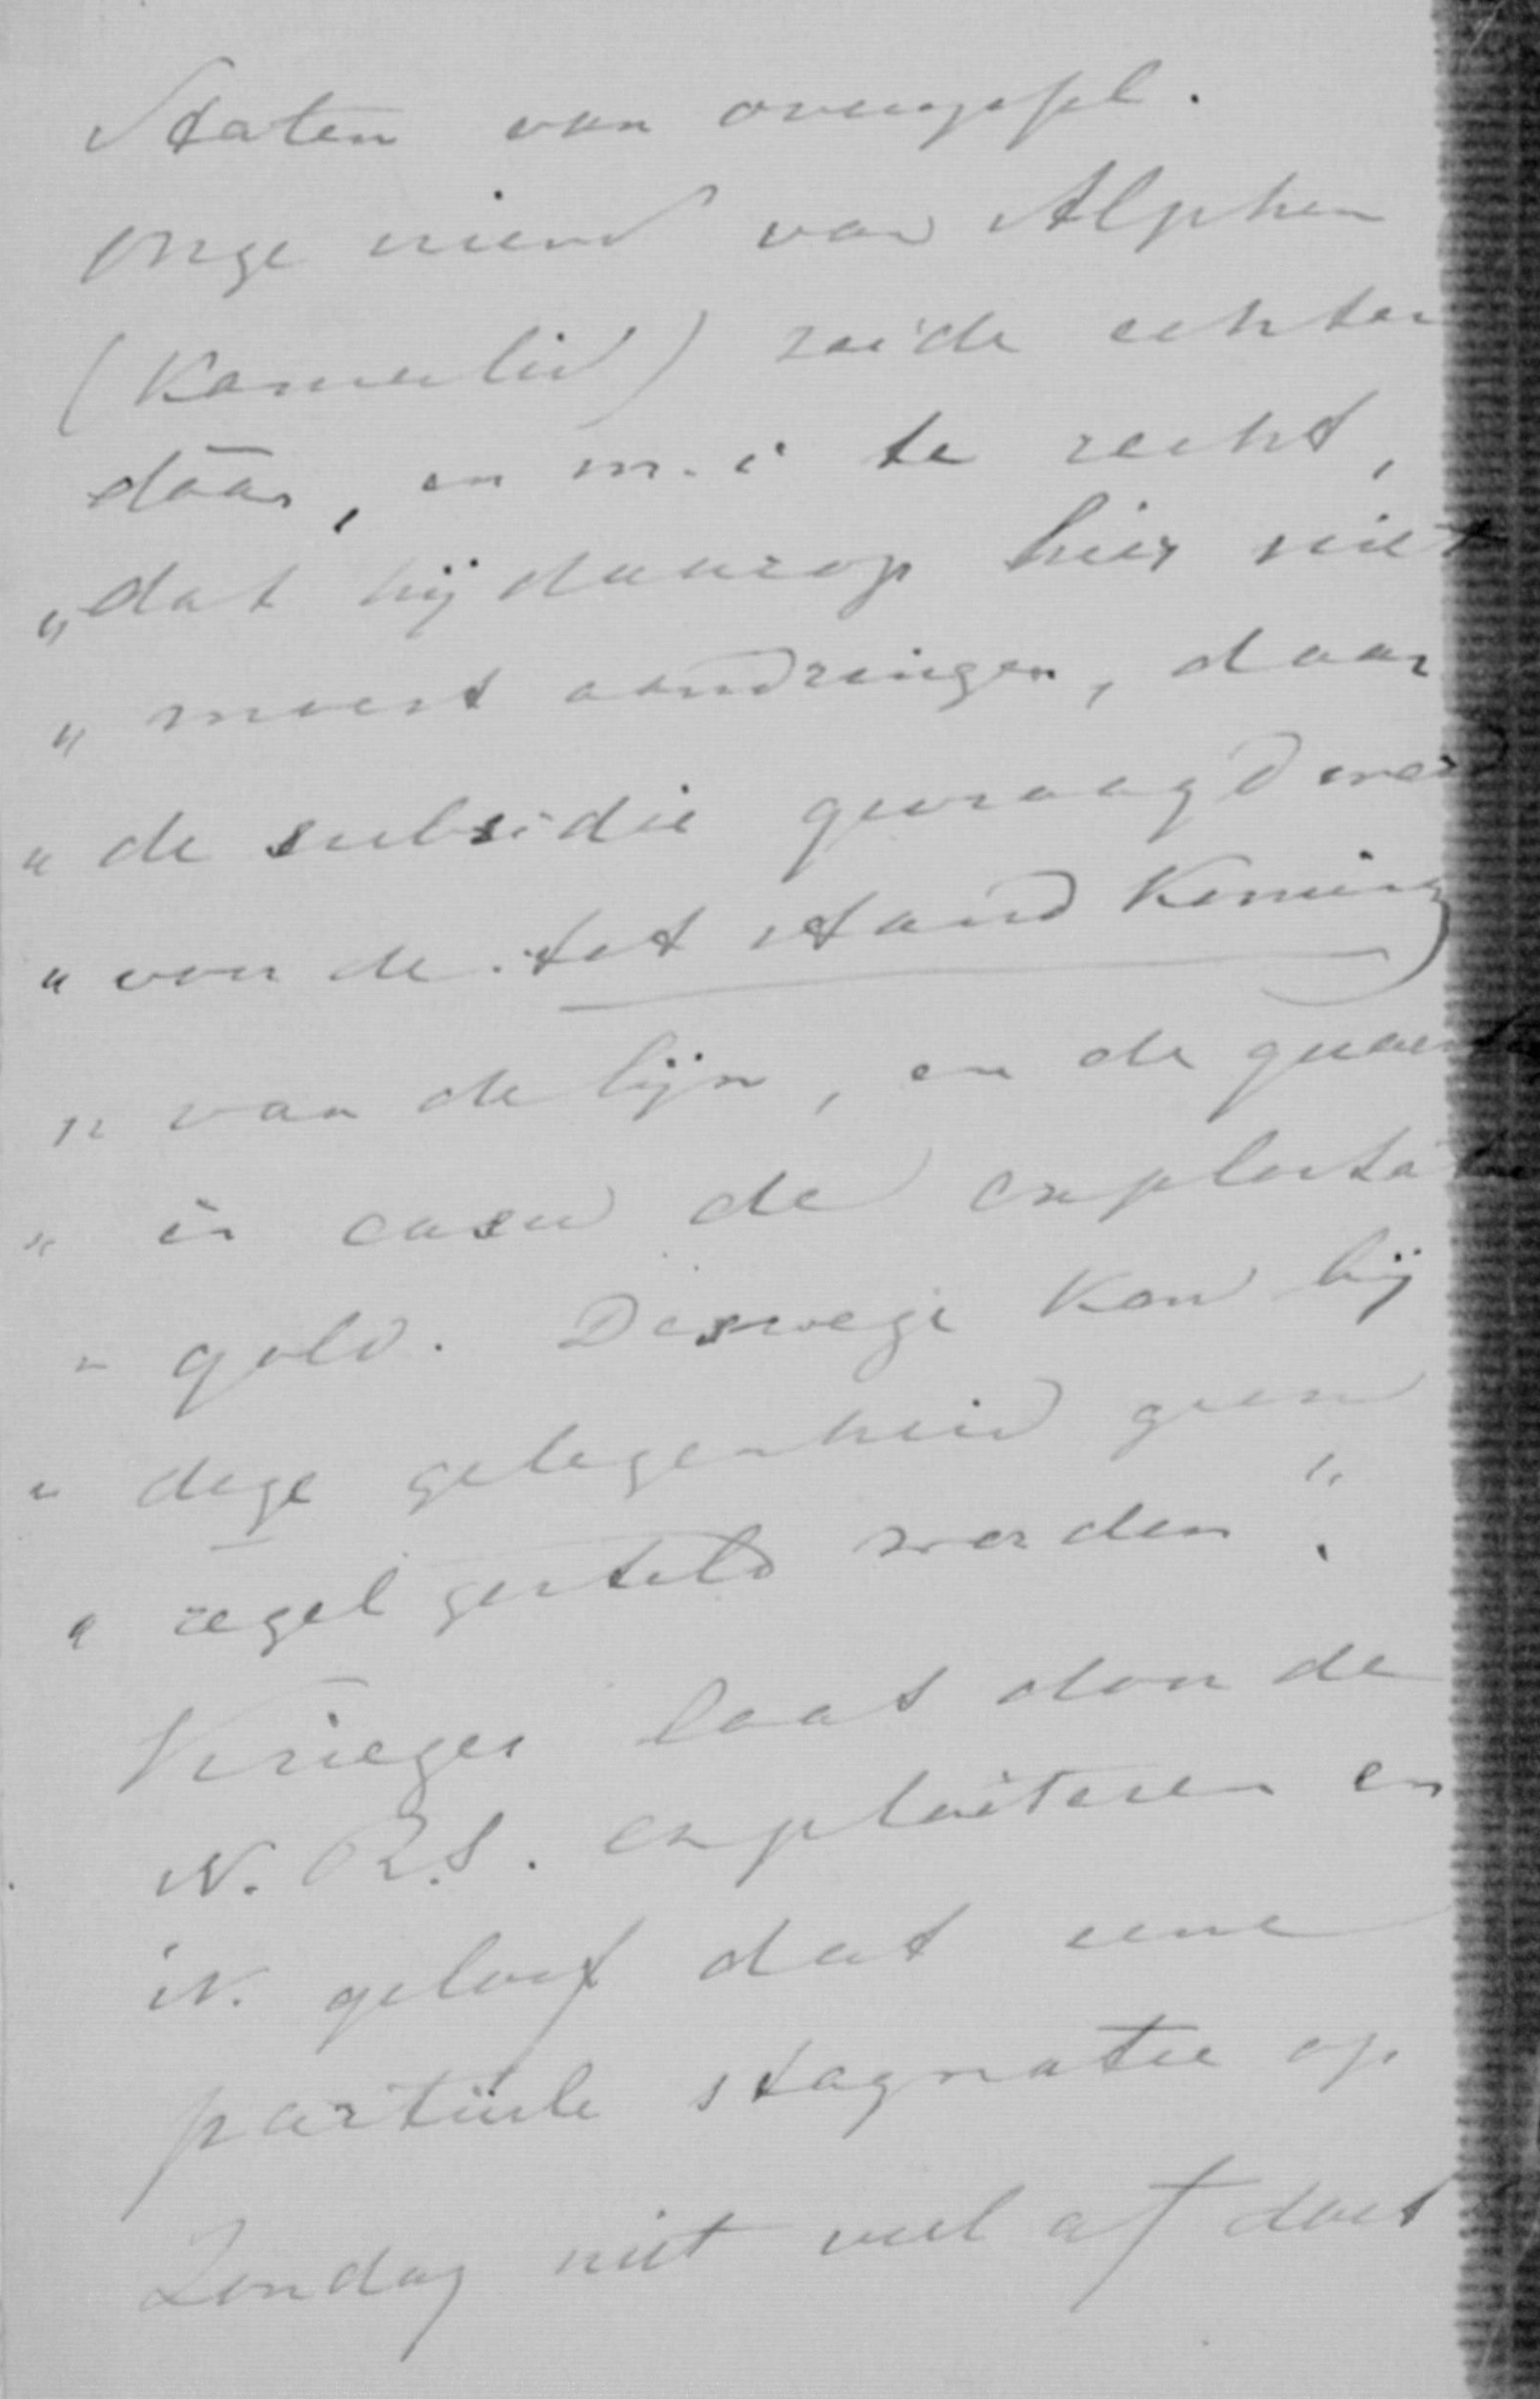 Staten van overijssel.
onze vriend van Alphen
(Kamerlid) zeide echter
dáár, en m. i te recht,
„dat hij daarop hier niet
„ moest aandringen, daar
„ de subsidie gevraagd werd
„ voor de tot stand Koming
„ van de lijn, en de quaestie
„ in casu de exploitatie
„ gold. Deswege kon bij
„ deze gelegenheid geen
„ regel gesteld worden".
Krieger laat door de
N. R.S. exploiteren en
ik geloof dat eene
partiëele stagnatie op
Zondag niet veel af doet